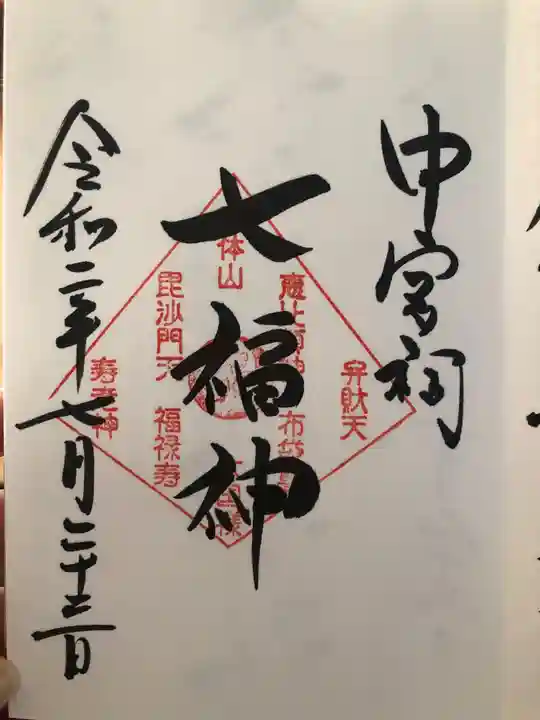 中宮祠
七福神
令和二年七月二十三日
弁財天
恵比寿神
布袋尊
体山
毘沙門天
福禄寿
寿老神